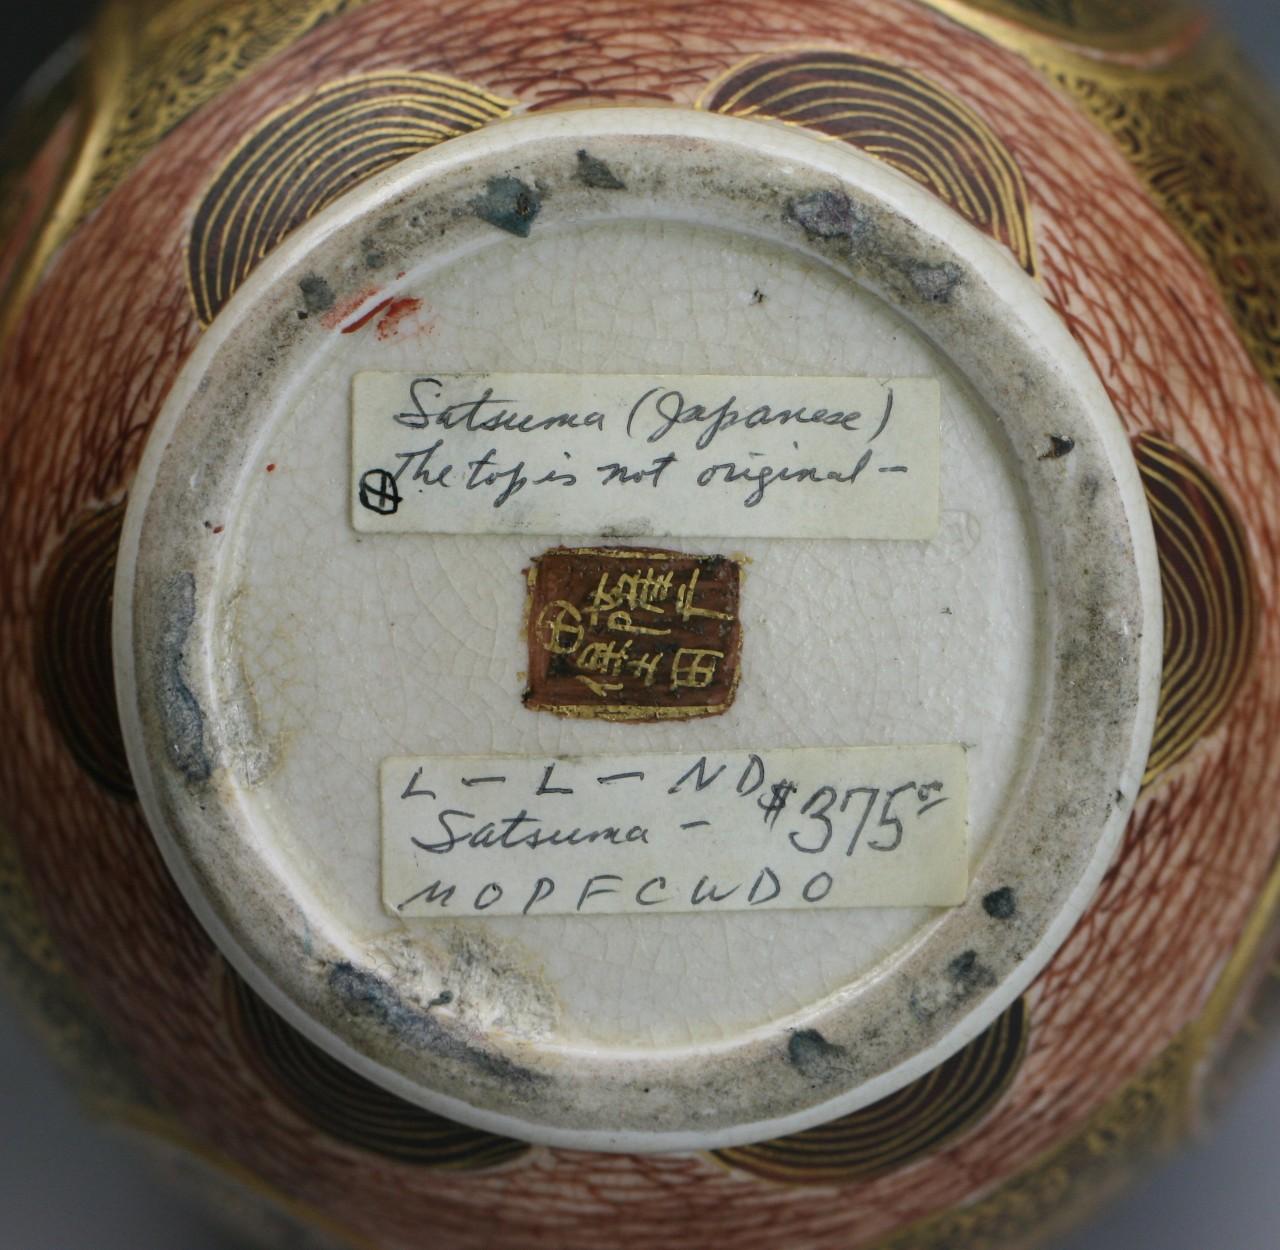 Satsuma (Japanese)
The top is not original —
L — L — ND
Satsuma — $375
M O P F C W D O